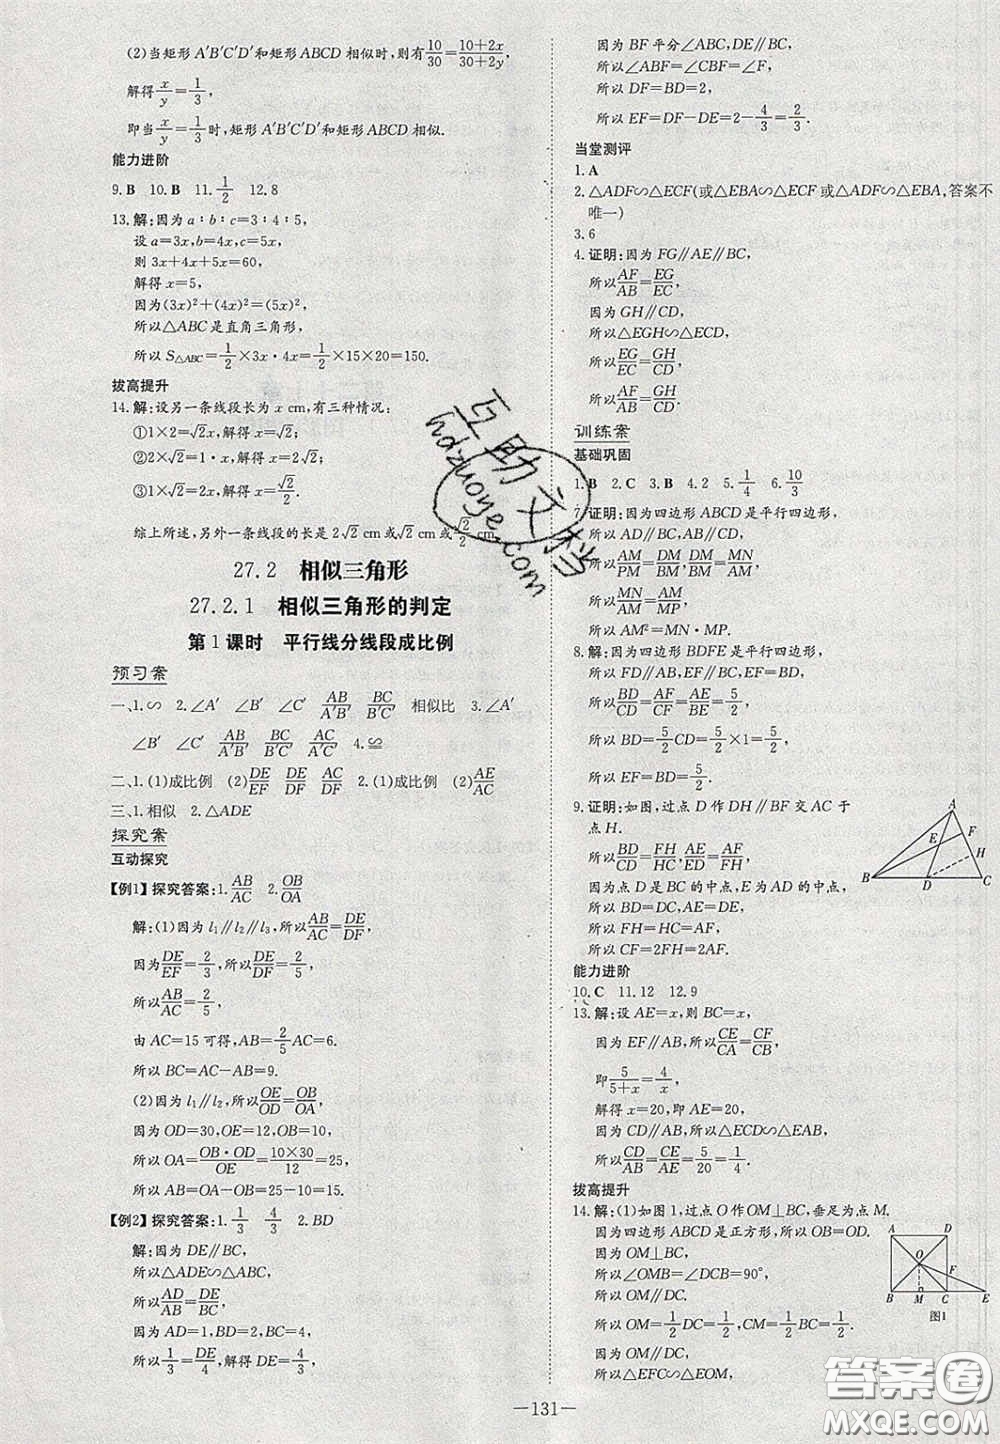 (2)当矩形 A'B'C'D' 和矩形 ABCD 相似时,则有10/30=(10+2x)/(30+2y),
解得x/y=1/3,
即当x/y=1/3时,矩形 A'B'C'D' 和矩形 ABCD 相似.
能力进阶
9.B 10.B 11.1/2 12.8
13.解:因为 a∶b∶c=3∶4∶5,
设 a=3x,b=4x,c=5x,
则 3x+4x+5x=60,
解得 x=5,
因为(3x)²+(4x)²=(5x)²,
所以△ABC 是直角三角形,
所以 S△ABC=1/2×3x·4x=1/2×15×20=150.
拔高提升
14.解:设另一条线段长为 x cm,有三种情况:
①1×2=√2x,解得 x=√2;
②1×x=2×√2,解得 x=2√2;
③1×√2=2x,解得 x=√2/2.
综上所述,另外一条线段的长是 2√2 cm或√2 cm或√2/2 cm
27.2 相似三角形
27.2.1 相似三角形的判定
第1课时 平行线分线段成比例
预习案
一、1.∽ 2.∠A' ∠B' ∠C' AB/A'B' BC/B'C' 相似比 3.∠A'
∠B' ∠C' AB/A'B' BC/B'C' AC/A'C' 4.≌
二、1.(1)成比例 (2)DE/EF DE/DF AC/DF 2.(1)成比例 (2)AE/AC
三、1.相似 2.△ADE
探究案
互动探究
【例1】探究答案:1.AB/AC 2.OB/OA
解:(1)因为 l₁∥l₂∥l₃,所以AB/AC=DE/DF,
因为DE/EF=2/3,所以DE/DF=2/5,
所以AB/AC=2/5,
由 AC=15 可得,AB=2/5AC=6.
所以 BC=AC-AB=9.
(2)因为 l₁∥l₂,所以OE/OD=OB/OA,
因为 OD=30,OE=12,OB=10,
所以 OA=OB·OD/OE=10×30/12=25,
所以 AB=OA-OB=25-10=15.
【例2】探究答案:1.1/3 4/3 2.BD
解:因为 DE∥BC,
所以△ADE∽△ABC,
所以AD/AB=DE/BC,
因为 AD=1,BD=2,BC=4,
所以1/3=DE/4,解得 DE=4/3,
因为 BF 平分∠ABC,DE∥BC,
所以∠ABF=∠CBF=∠F,
所以 DF=BD=2,
所以 EF=DF-DE=2-4/3=2/3.
当堂测评
1.A
2.△ADF∽△ECF(或△EBA∽△ECF 或△ADF∽△EBA,答案不
唯一)
3.6
4.证明:因为 FG∥AE∥BC,
所以AF/AB=EG/EC,
因为 GH∥CD,
所以△EGH∽△ECD,
所以EG/EC=GH/CD,
所以AF/AB=GH/CD.
训练案
基础巩固
1.B 2.C 3.B 4.2 5.1/4 6.10/3
7.证明:因为四边形 ABCD 是平行四边形,
所以 AD∥BC,AB∥CD,
所以AM/PM=DM/BM,DM/BM=MN/AM,
所以MN/AM=AM/MP,
所以 AM²=MN·MP.
8.解:因为四边形 BDFE 是平行四边形,
所以 FD∥AB,EF∥BC,EF=BD,
所以BD/CD=AF/CF=AE/BE=5/2,
所以 BD=5/2CD=5/2×1=5/2,
所以 EF=BD=5/2.
9.证明:如图,过点 D 作 DH∥BF 交 AC 于
点 H.
所以BD/CD=FH/HC,AE/ED=AF/FH,
因为点 D 是 BC 的中点,E 为 AD 的中点,
所以 BD=CD,AE=DE,
所以 FH=HC=AF,
所以 CF=2FH=2AF.
A E F H B D C
能力进阶
10.C 11.12 12.9
13.解:设 AE=x,则 BC=x,
因为 EF∥AB,所以CE/CA=CF/CB,
即5/(5+x)=4/x,
解得 x=20,即 AE=20,
因为 CD∥AB,所以△ECD∽△EAB,
所以CD/AB=CE/AE=5/20=1/4.
拔高提升
14.解:(1)如图1,过点 O 作 OM⊥BC,垂足为点 M.
因为四边形 ABCD 是正方形,所以 OB=OD.
因为 OM⊥BC,
所以∠OMB=∠DCB=90°,
所以 OM∥DC.
所以 OM=1/2DC=1/2BC,CM=1/2BC.
因为 OM∥DC,
所以△EFC∽△EOM,
A D O F B M C E
图1
—131—
互助文档
hdzuoye.com
答案圈
MXQE.COM